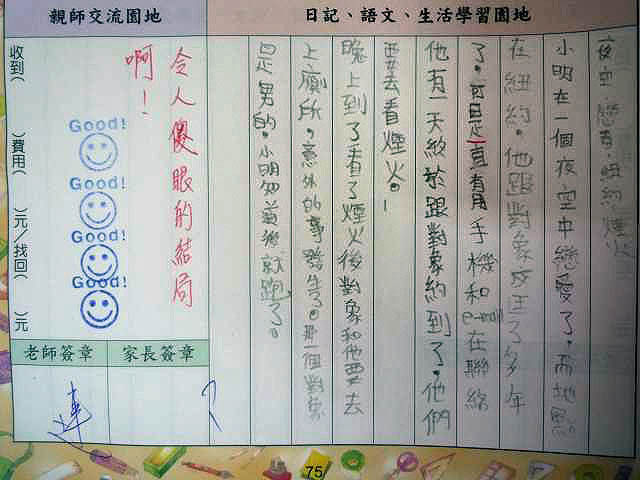 日記、語文、生活學習園地
夜空,戀愛,紐約,煙火
小明在一個夜空中戀愛了。而地點
在紐約。他跟對象交往了多年
了。可是一直有用手機和e-mail在聯絡
他有一天終於跟對象約到了。他們
要去看煙火。!
晚上到了看了煙火後對象和他要去
上廁所。意外的事發生了。那一個對象
是男的。小明知道後就跑了。
親師交流園地
令人傻眼的結局
啊!
Good!
Good!
Good!
Good!
收到( )費用( )元/找回( )元
老師簽章
家長簽章
75